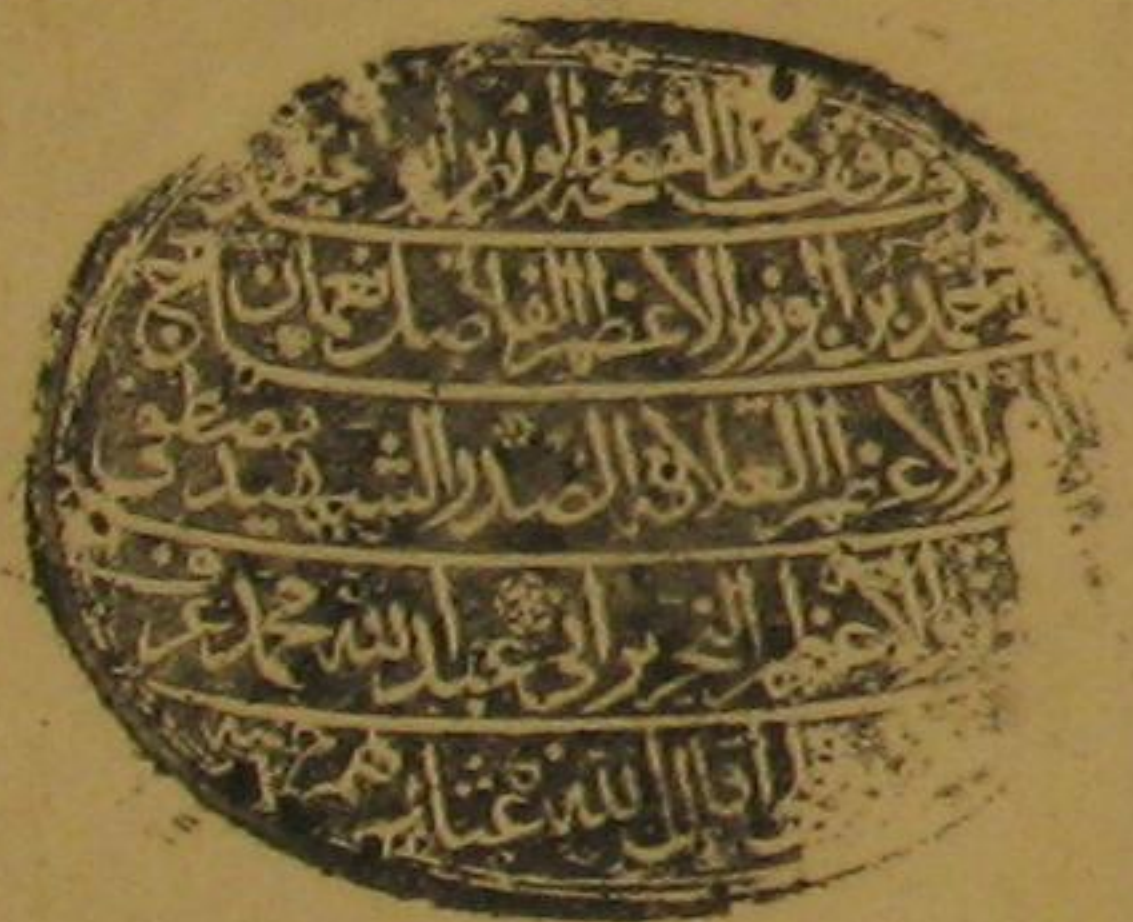 وقف هذا الوزير ابو
احمد بن الوزير الاعظم الفاضل نعمان
الاعظم العلامة الصدر الشهيد مصطفى
الاعظم النحرير ابي عبد الله محمد عرف
اقال الله عثارهم